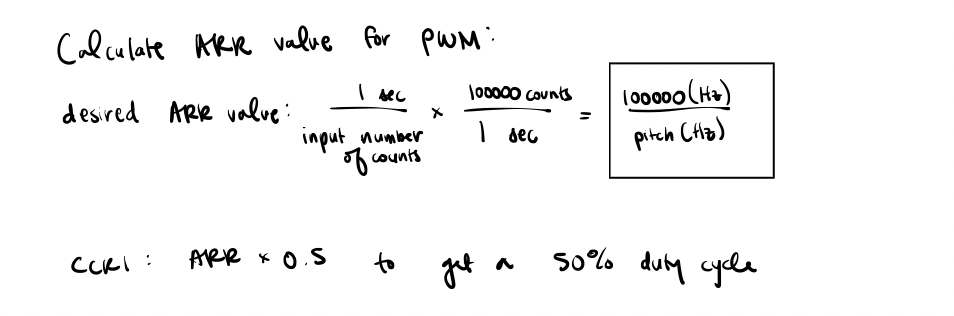 Calculate ARR value for PWM:
desired ARR value: 1 sec / input number of counts × 100000 counts / 1 sec = 100000 (Hz) / pitch (Hz)
CCR1: ARR × 0.5 to get a 50% duty cycle